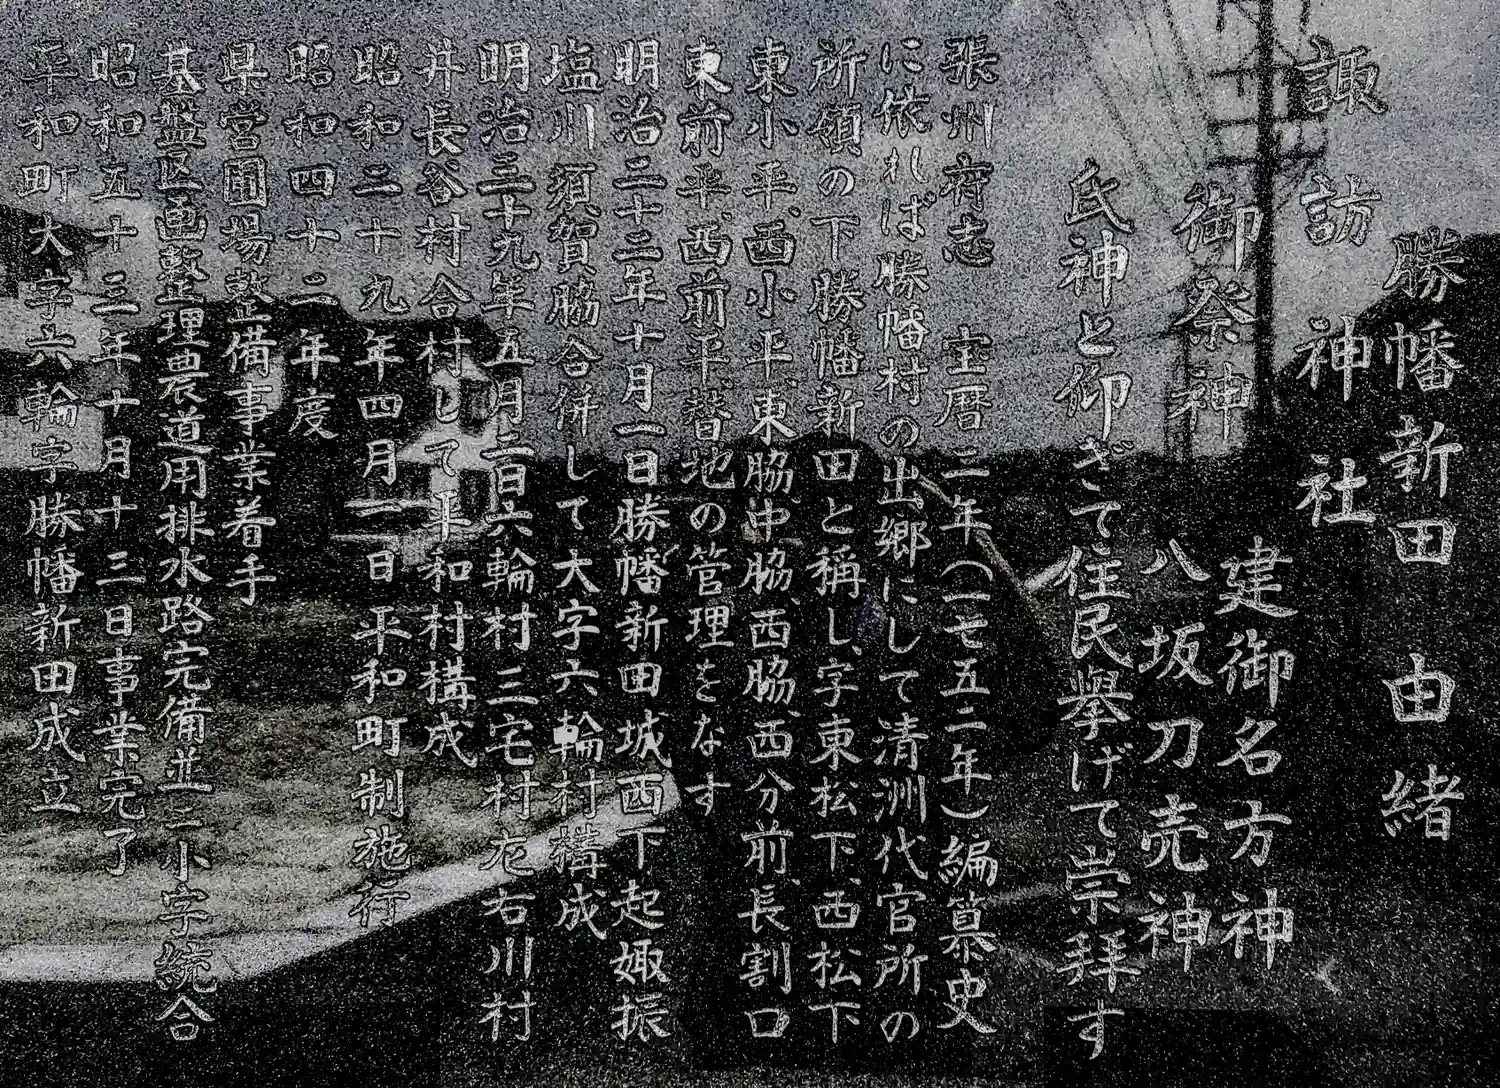 勝幡新田 由緒
諏訪神社
御祭神 建御名方神
八坂刀売神
氏神と仰ぎて住民挙げて崇拝す
張州府志 宝暦二年(一七五二年)編纂史
に依れば勝幡村の出郷にして清洲代官所の
所領の下勝幡新田と稱し、字東松下、西松下
東小平、西小平、東脇、中脇、西脇、西分前、長割口
東前平、西前平、替地の管理をなす
明治二十二年十月一日勝幡新田城西下起娵振
塩川、須賀、脇合併して大字六輪村構成
明治三十九年五月一日六輪村三宅村右川村
井長谷村合村して平和村構成
昭和二十九年四月一日平和町制施行
昭和四十二年度
県営圃場整備事業着手
基盤区画整理農道用排水路完備並ニ小字統合
昭和五十三年十月十三日事業完了
平和町大字六輪字勝幡新田成立